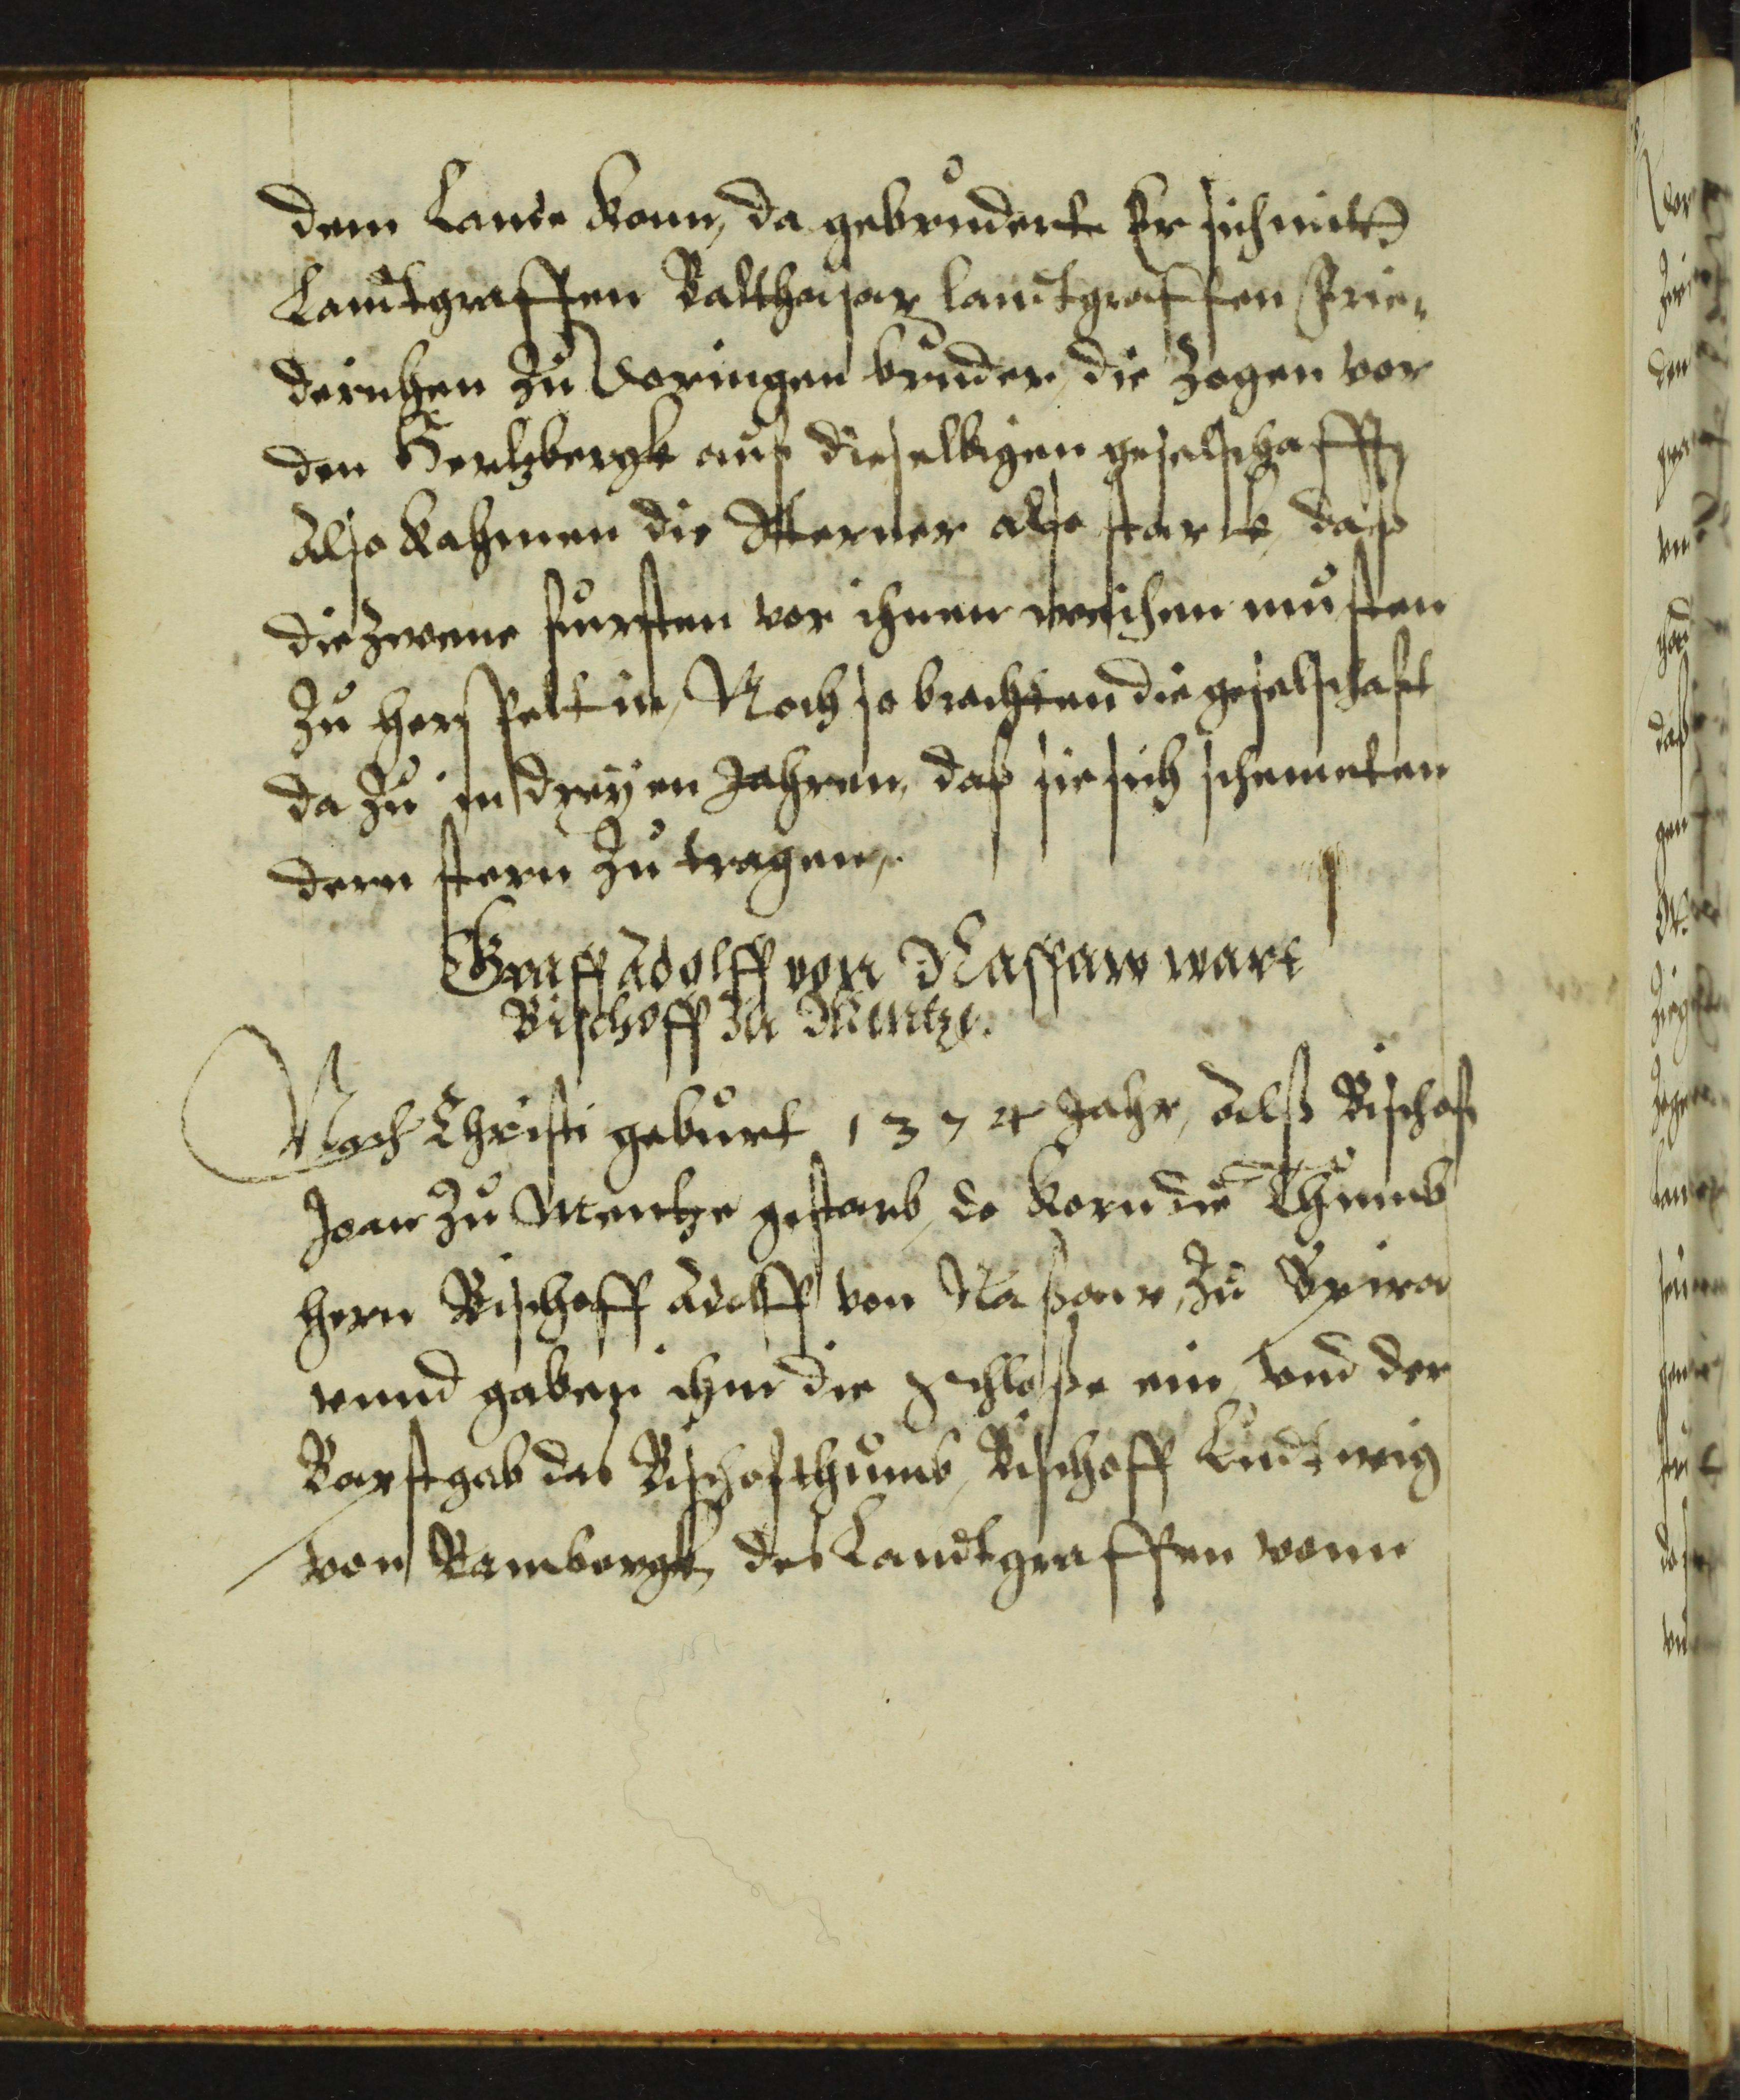 dem Lande konn, da gebruderte Er sich mitt
Landtgraffen Balthasar landtgraffen Frie,
derichen zu Doringen bruder, die zogen vor
den Hertzbergk auf dieselbigen geselschafft
Also kahmen die Sterner also starck, daß
die zwene fursten vor ihnen weichen musten
zu Hersfelt in, Noch so brachten die geselschaft
da zu in dreyen Jahren, daß sie sich schemeten
dern stern zu tragen,
Graff Adolff von Nassaw wart
Bischoff zu Mentze.
Nach Christi geburt 1374 Jahr, Alß Bischof
Joan zu Mentze gestarb, do korn die Thumb
hern Bischoff Adolff von Naßaw, zu Speira
vnnd gaben ihm die Schloße ein, vnd der
Bapst gab das Bischofthumb, Bischoff Ludtwig
von Bambergk, des Landtgraffen vonn